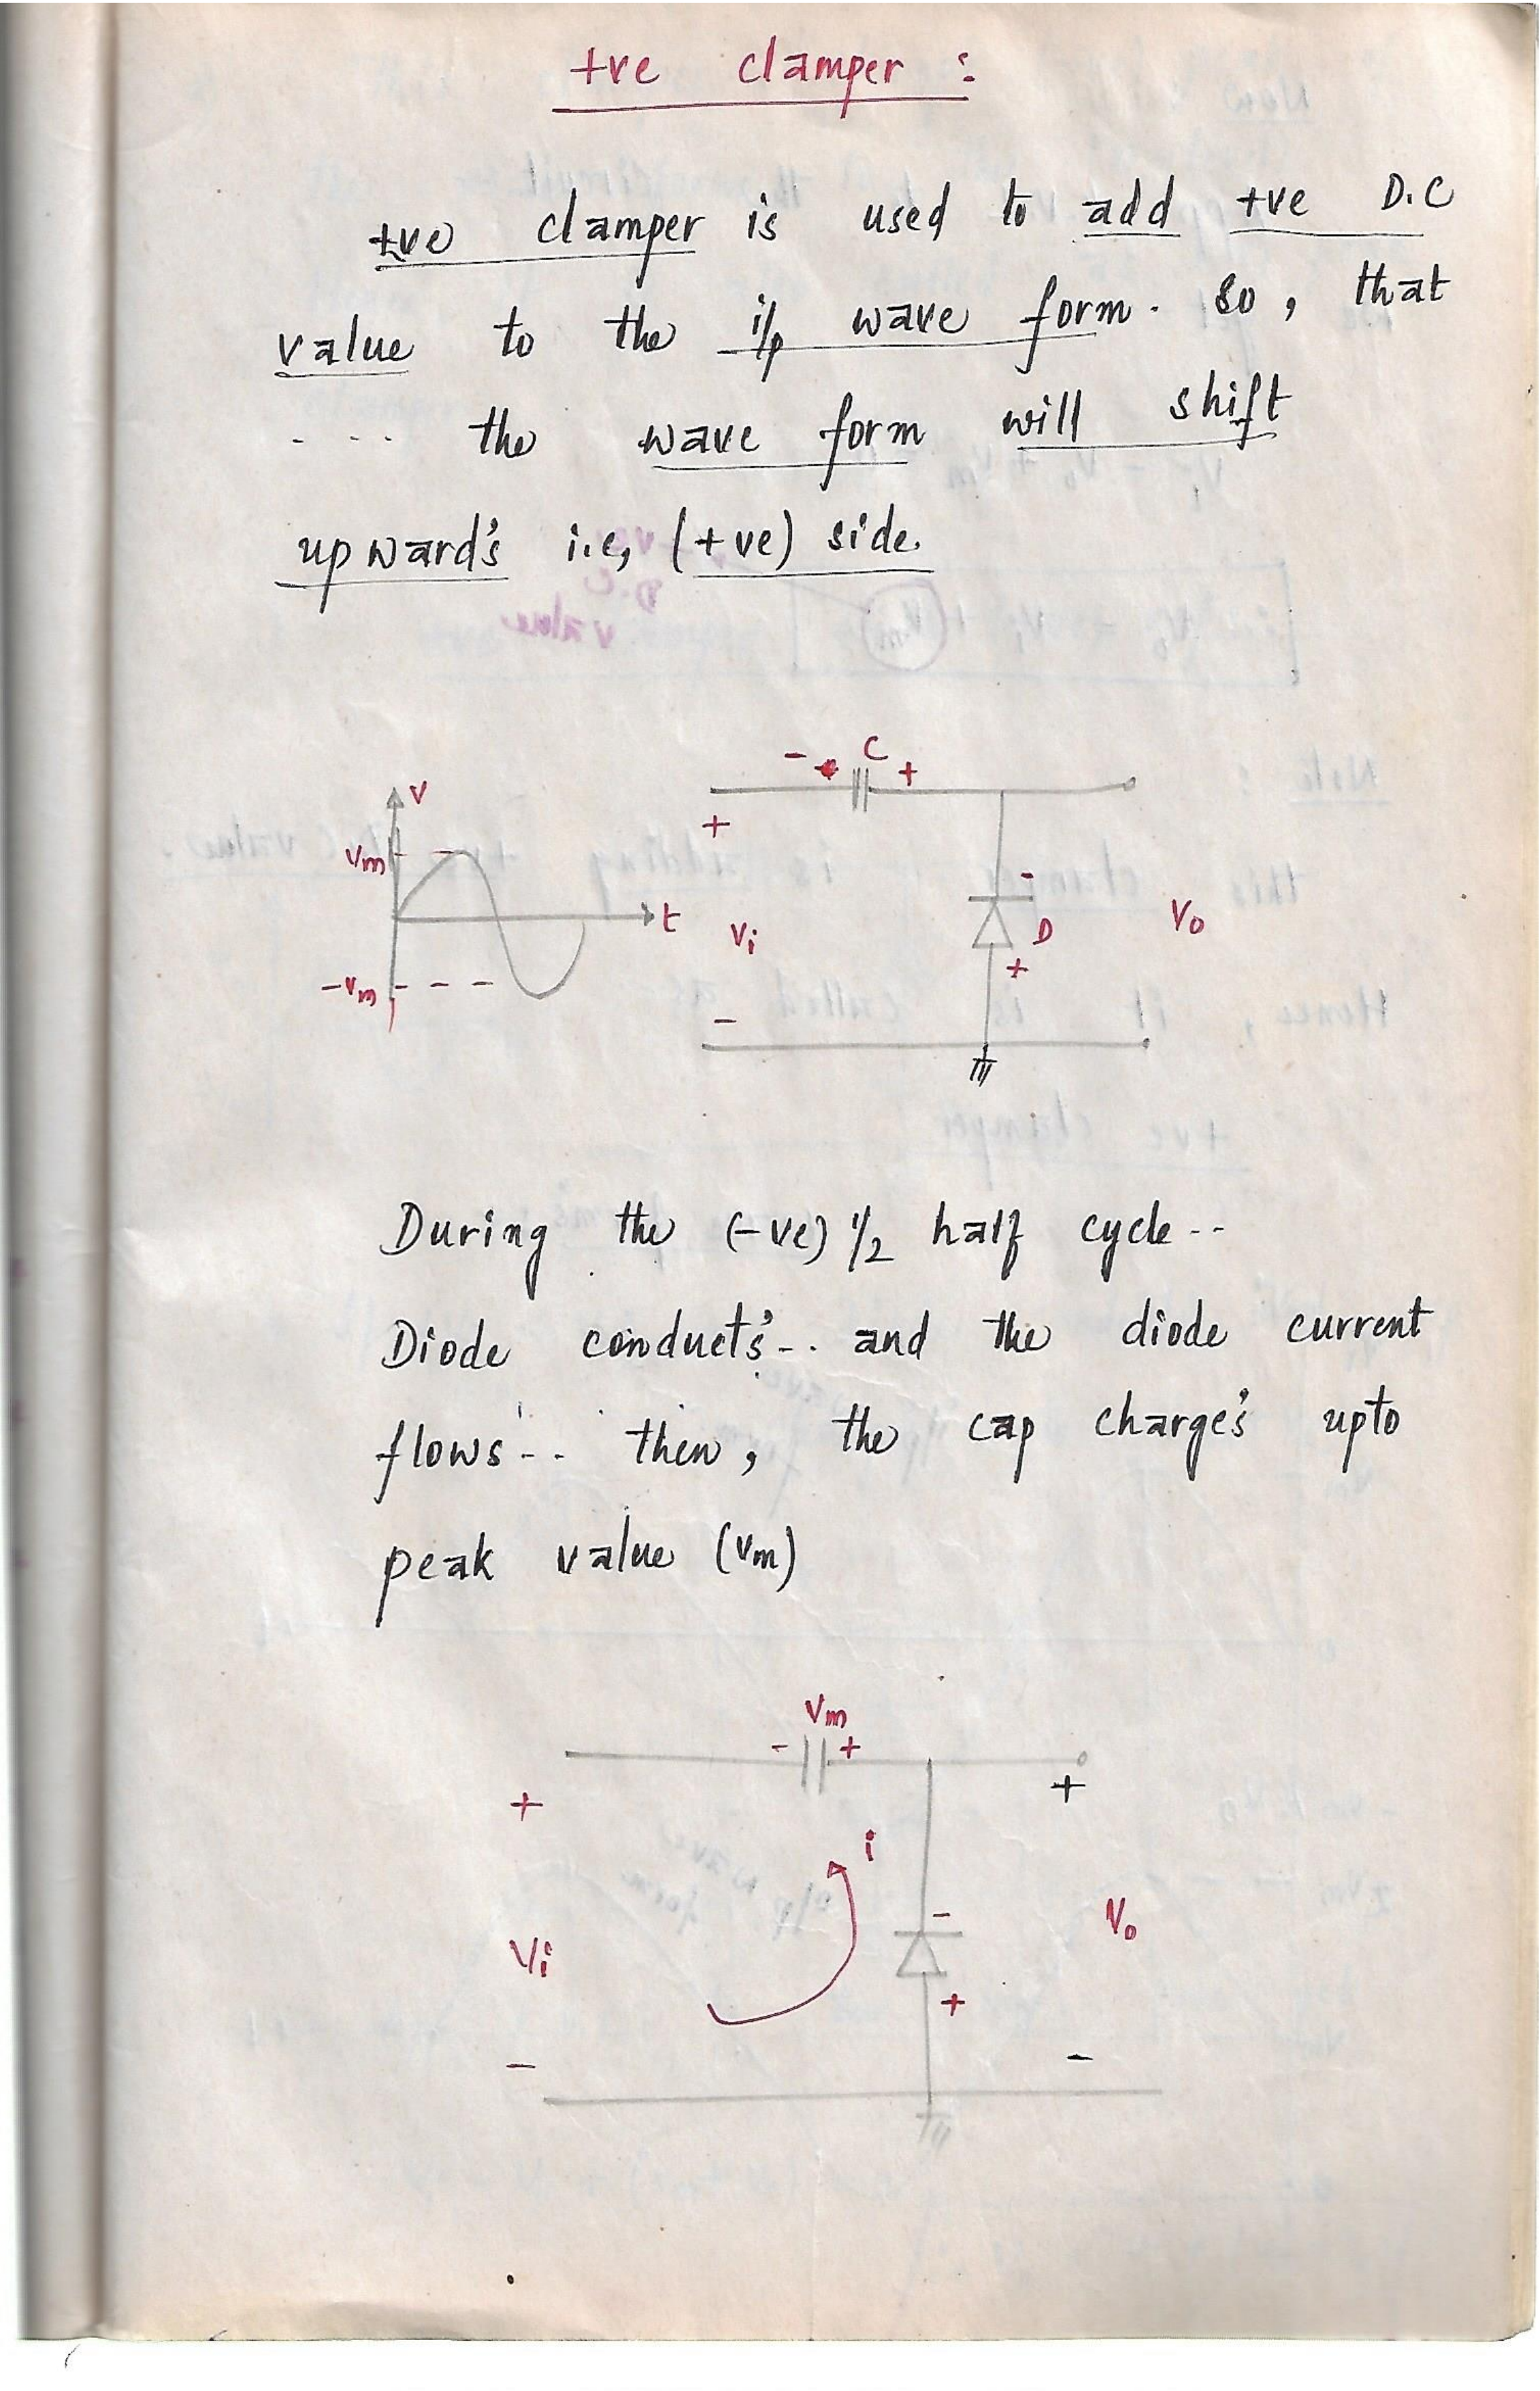 +ve clamper :
+ve clamper is used to add +ve D.C
value to the i/p wave form. So, that
- - - - the wave form will shift
upward's i.e, (+ve) side.
- C +
V
Vm
t
-Vm
+
Vi
-
-
D
+
Vo
During the (-ve) 1/2 half cycle --
Diode conduct's -.. and the diode current
flows -.. then, the cap charge's upto
peak value (Vm)
Vm
- +
+
+
i
Vi
-
+
Vo
-
-